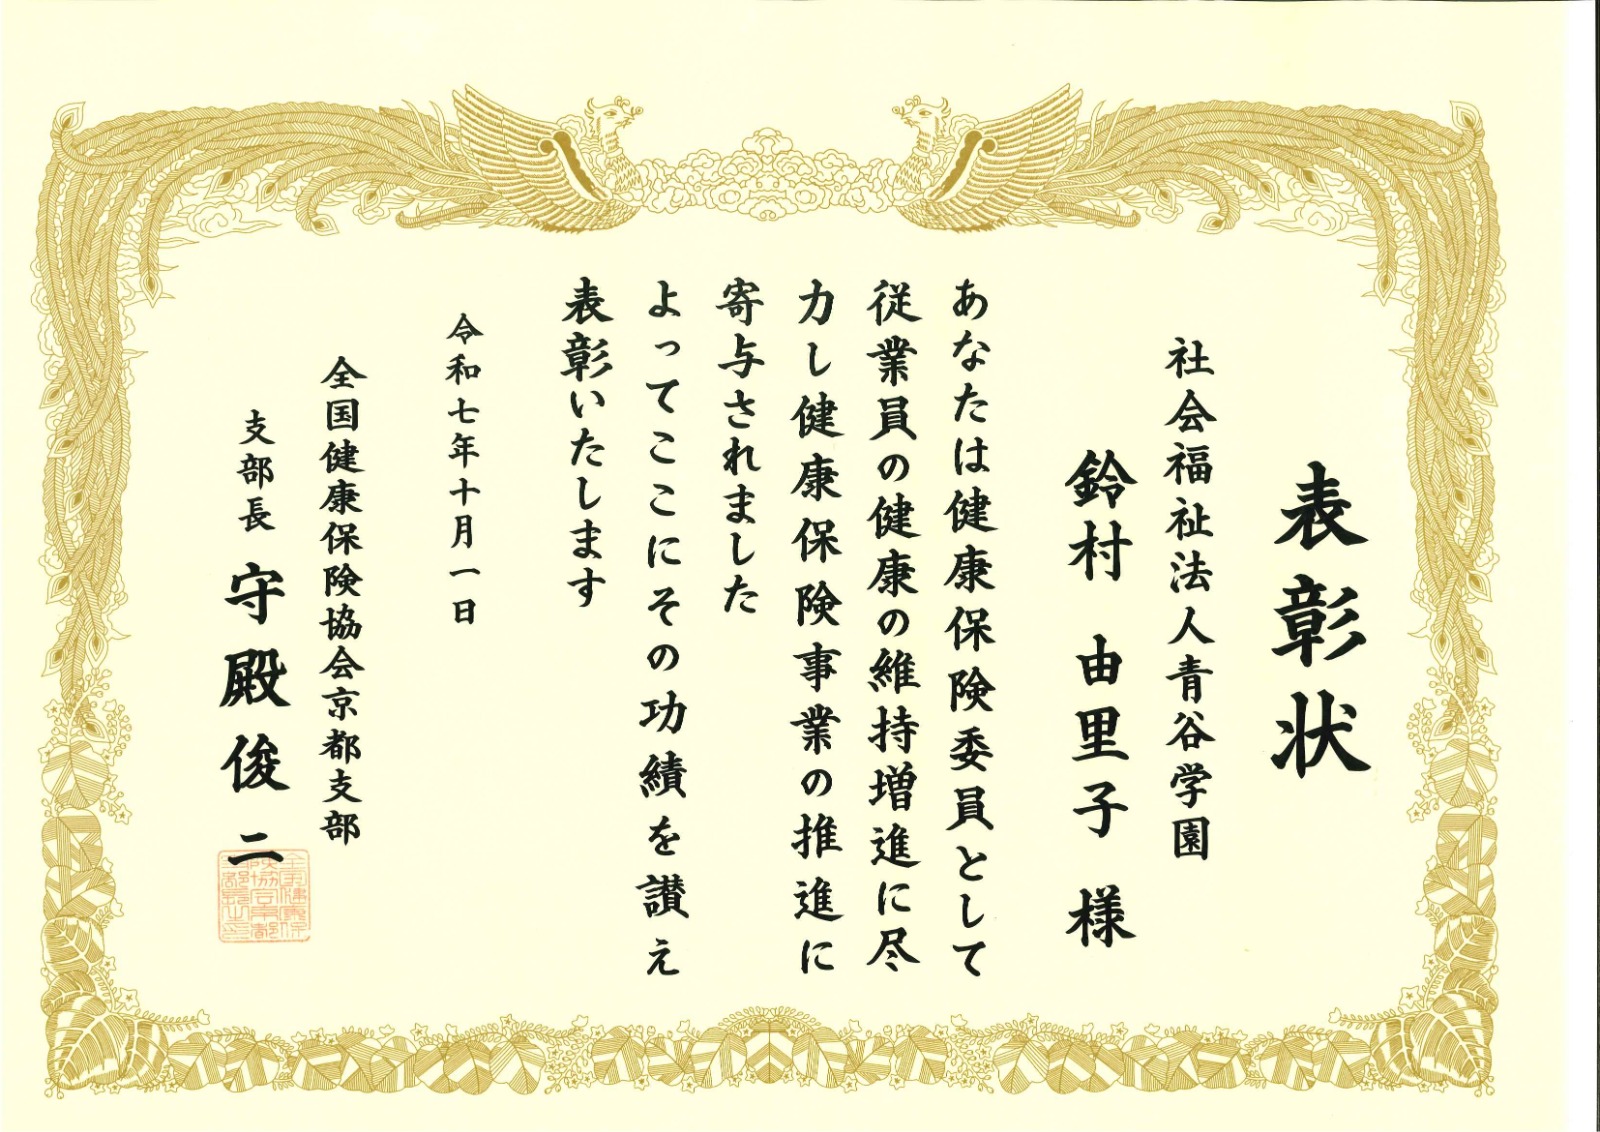 表彰状
社会福祉法人青谷学園
鈴村 由里子 様
あなたは健康保険委員として
従業員の健康の維持増進に尽
力し健康保険事業の推進に
寄与されました
よってここにその功績を讃え
表彰いたします
令和七年十月一日
全国健康保険協会京都支部
支部長 守殿俊二